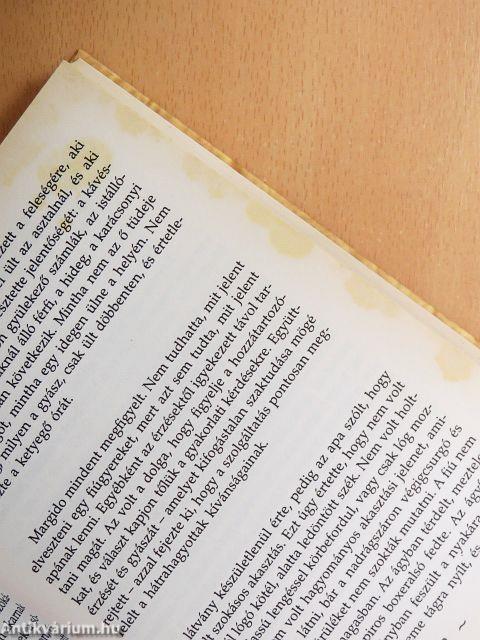 zett a feleségére, aki
l ül az asztalnál, és aki
esztette jelentőségét: a kávés-
n gyülekező számlák, az istálló-
knál álló férfi, a hideg, a karácsonyi
an következik. Mintha nem az ő tüdeje
got, mintha egy idegen ülne a helyén. Nem
milyen a gyász, csak ült döbbenten, és értetle-
zte a ketyegő órát.
Margido mindent megfigyelt. Nem tudhatta, mit jelent
elveszíteni egy fiúgyereket, mert azt sem tudta, mit jelent
apának lenni. Egyébként az érzésektől igyekezett távol tar-
tani magát. Az volt a dolga, hogy figyelje a hozzátartozó-
kat, és választ kapjon tőlük a gyakorlati kérdésekre. Együtt-
érzését és gyászát – amelyet kifogástalan szaktudása mögé
rejtett – azzal fejezte ki, hogy a szolgáltatás pontosan meg-
felelt a hátrahagyottak kívánságainak.
látvány készületlenül érte, pedig az apa szólt, hogy
szokásos akasztás. Ezt úgy értette, hogy nem volt
logó kötél, alatta ledöntött szék. Nem volt holt-
assú lengéssel körbefordul, vagy csak lóg moz-
m volt hagyományos akasztási jelenet, ami-
látni, bár a nadrágszáron végigcsurgó és
ürüléket nem szokták mutatni. A fiú nem
agasban. Az ágyban térdelt, meztele
áros boxeralsó fedte. Az ágy
an feszült a nyakára
e tágra nyílt, és
Antikvárium.hu